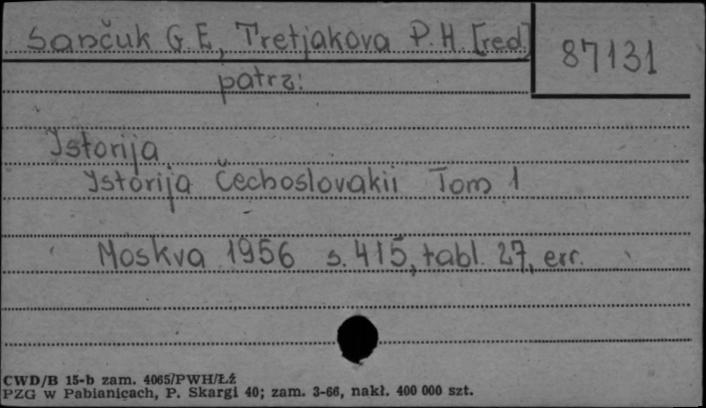 Sančuk G. E., Tretjakova P. H. [red]
87131
patrz:
Istorija
Istorija Čechoslovakii Tom 1
Moskva 1956 s. 415, tabl. 27, err.
CWD/B 15-b zam. 4065/PWH/Łź
PZG w Pabianicach, P. Skargi 40; zam. 3-66, nakł. 400 000 szt.